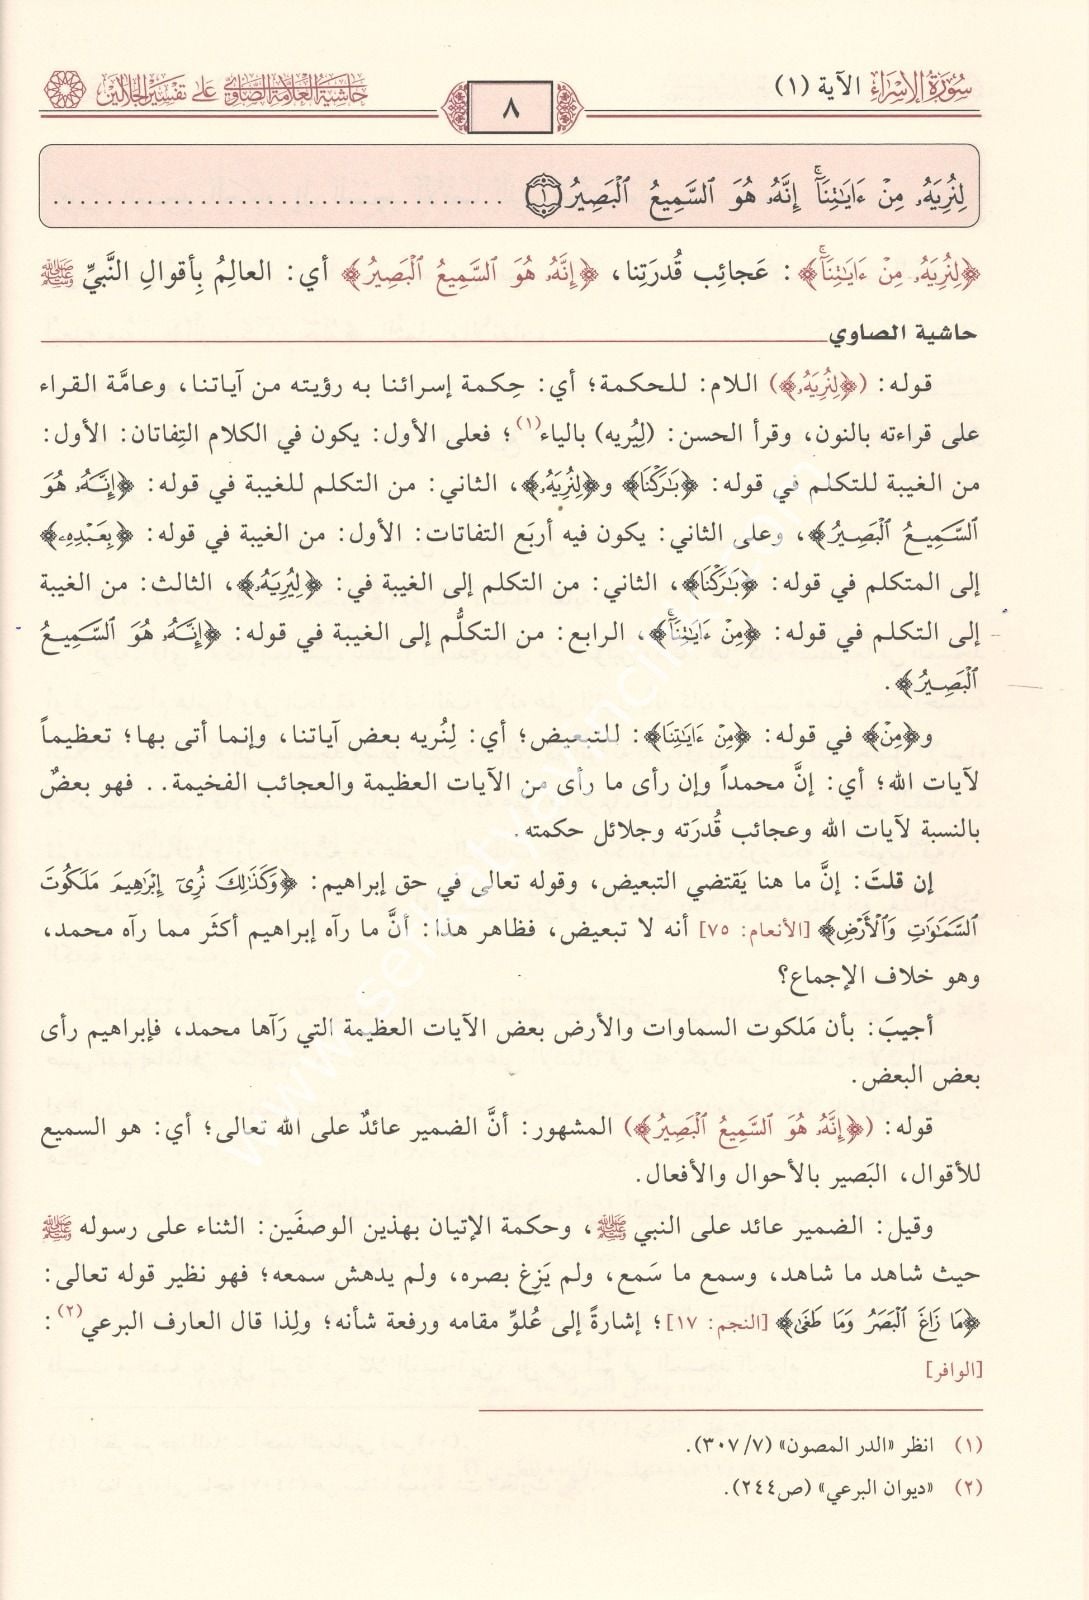 سُورَةُ الإِسْرَاءِ الآية (١)
٨
حَاشِيَةُ العَلَّامَةِ الصَّاوِيِّ عَلَى تَفْسِيرِ الجَلَالَيْنِ
لِنُرِيَهُۥ مِنْ ءَايَـٰتِنَآۚ إِنَّهُۥ هُوَ ٱلسَّمِيعُ ٱلْبَصِيرُ ١ ..................................
﴿لِنُرِيَهُۥ مِنْ ءَايَـٰتِنَآۚ﴾: عَجائِب قُدرَتِنا، ﴿إِنَّهُۥ هُوَ ٱلسَّمِيعُ ٱلْبَصِيرُ﴾ أي: العالِمُ بِأقوالِ النَّبيِّ ﷺ
حاشية الصاوي
قوله: (﴿لِنُرِيَهُۥ﴾) اللام: للحكمة؛ أي: حِكمة إسرائنا به رؤيته من آياتنا، وعامَّة القراء
على قراءته بالنون، وقرأ الحسن: (لِيُريه) بالياء(١)؛ فعلى الأول: يكون في الكلام التِفاتان: الأول:
من الغيبة للتكلم في قوله: ﴿بَـٰرَكْنَا﴾ و﴿لِنُرِيَهُۥ﴾، الثاني: من التكلم للغيبة في قوله: ﴿إِنَّهُۥ هُوَ
ٱلسَّمِيعُ ٱلْبَصِيرُ﴾، وعلى الثاني: يكون فيه أربَع التفاتات: الأول: من الغيبة في قوله: ﴿بِعَبْدِهِۦ﴾
إلى المتكلم في قوله: ﴿بَـٰرَكْنَا﴾، الثاني: من التكلم إلى الغيبة في: ﴿لِيُرِيَهُۥ﴾، الثالث: من الغيبة
إلى التكلم في قوله: ﴿مِنْ ءَايَـٰتِنَآۚ﴾، الرابع: من التكلُّم إلى الغيبة في قوله: ﴿إِنَّهُۥ هُوَ ٱلسَّمِيعُ
ٱلْبَصِيرُ﴾.
و﴿مِنْ﴾ في قوله: ﴿مِنْ ءَايَـٰتِنَا﴾: للتبعيض؛ أي: لِنُريه بعض آياتنا، وإنما أتى بها؛ تعظيماً
لآيات الله؛ أي: إنَّ محمداً وإن رأى ما رأى من الآيات العظيمة والعجائب الفخيمة.. فهو بعضٌ
بالنسبة لآيات الله وعجائب قُدرَته وجلائل حكمته.
إن قلتَ: إنَّ ما هنا يَقتضي التبعيض، وقوله تعالى في حق إبراهيم: ﴿وَكَذَٰلِكَ نُرِىٓ إِبْرَٰهِيمَ مَلَكُوتَ
ٱلسَّمَـٰوَٰتِ وَٱلْأَرْضِ﴾ [الأنعام: ٧٥] أنه لا تبعيض، فظاهر هذا: أنَّ ما رآه إبراهيم أكثَر مما رآه محمد،
وهو خلاف الإجماع؟
أجيبَ: بأن مَلكوت السماوات والأرض بعض الآيات العظيمة التي رَآها محمد، فإبراهيم رأى
بعض البعض.
قوله: (﴿إِنَّهُۥ هُوَ ٱلسَّمِيعُ ٱلْبَصِيرُ﴾) المشهور: أنَّ الضمير عائدٌ على الله تعالى؛ أي: هو السميع
للأقوال، البَصير بالأحوال والأفعال.
وقيل: الضمير عائد على النبي ﷺ، وحكمة الإتيان بهذين الوصفَين: الثناء على رسوله ﷺ
حيث شاهد ما شاهد، وسمع ما سَمع، ولم يَزِغ بصره، ولم يدهش سمعه؛ فهو نظير قوله تعالى:
﴿مَا زَاغَ ٱلْبَصَرُ وَمَا طَغَىٰ﴾ [النجم: ١٧]؛ إشارةً إلى عُلوِّ مقامه ورفعة شأنه؛ ولِذا قال العارف البرعي(٢):
[الوافر]
(١) انظر «الدر المصون» (٣٠٧/٧).
(٢) «ديوان البرعي» (ص٢٤٤).